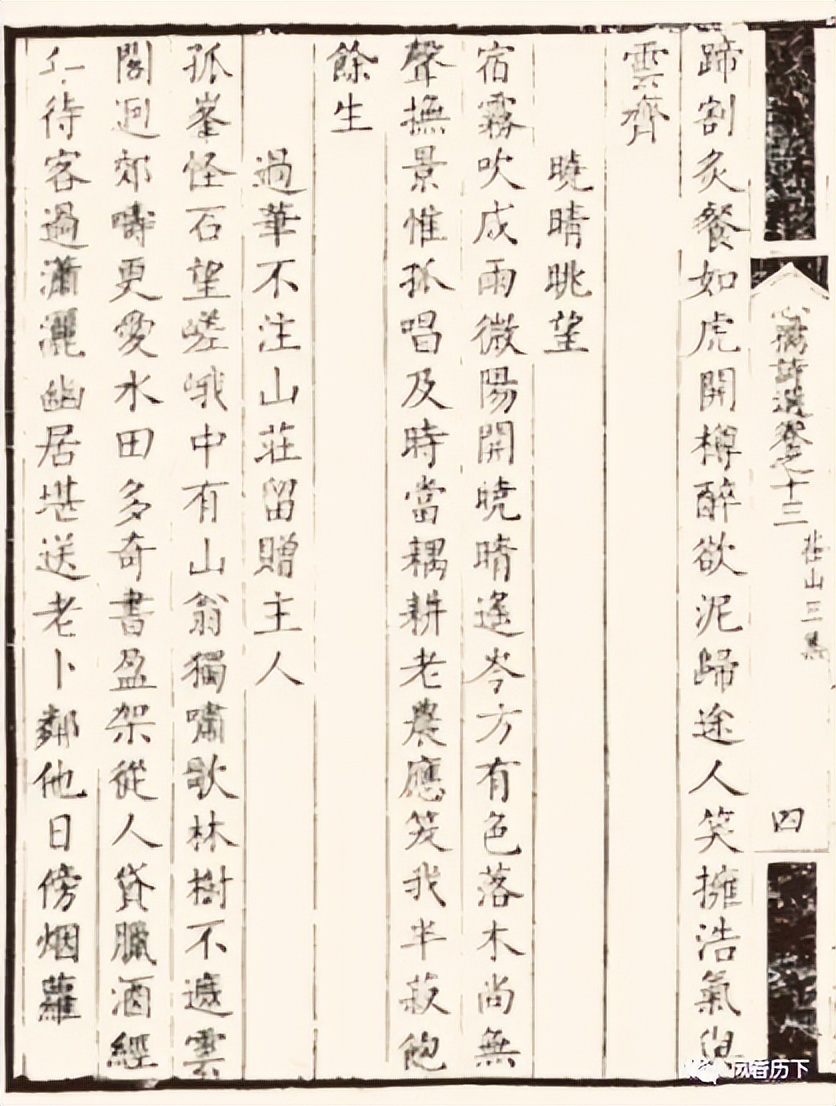 心孺詩選卷之十三
山三集
四
蹄割炙餐如虎開樽醉欲泥歸途人笑擁浩氣與
雲齊
曉晴眺望
宿霧吹成雨微陽開曉晴遙岑方有色落木尚無
聲撫景惟孤唱及時當耦耕老農應笑我半菽飽
餘生
過華不注山莊留贈主人
孤峯怪石望嵯峨中有山翁獨嘯歌林樹不遮雲
閣迥郊疇更愛水田多奇書盈架從人貸臘酒經
年待客過瀟灑幽居堪送老卜鄰他日傍烟蘿
看历下